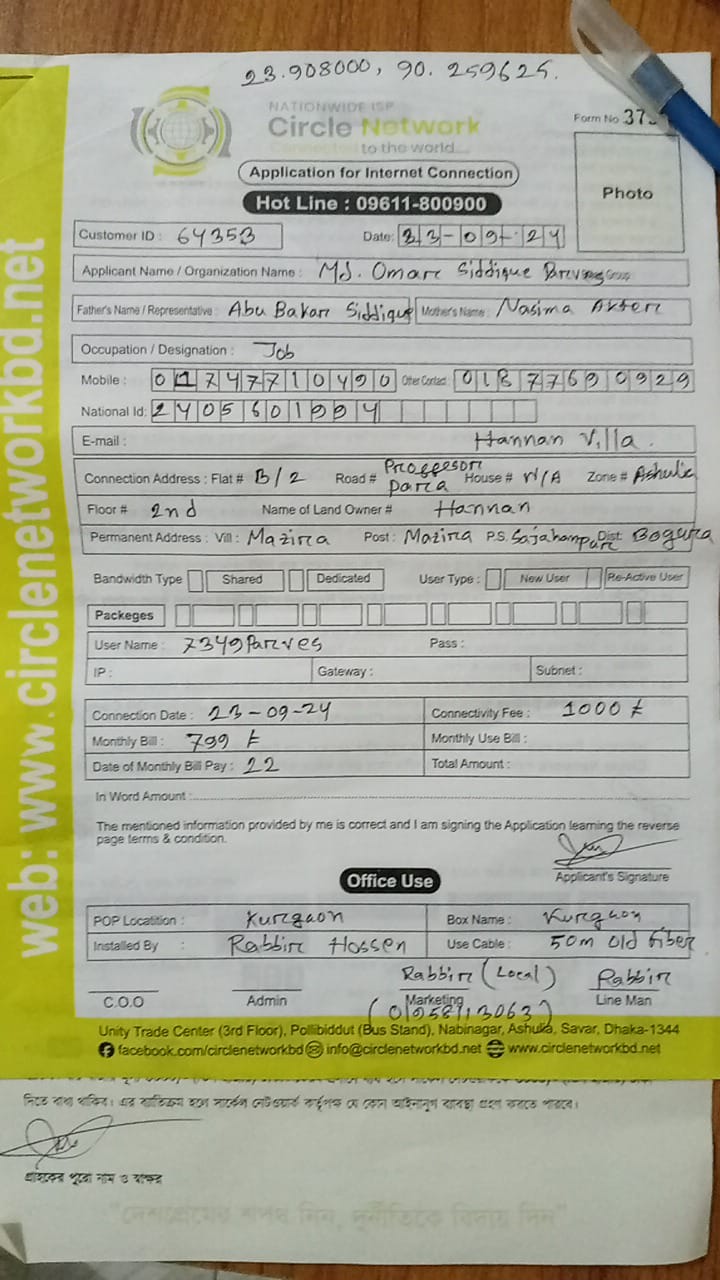 23.908000, 90.259625.
NATIONWIDE ISP
Circle Network
Connected to the world...
Form No 37
Application for Internet Connection
Hot Line : 09611-800900
Photo
Customer ID : 64353
Date: 23-09-24
Applicant Name / Organization Name : Md. Omar Siddique Group
Father's Name / Representative : Abu Bakar Siddique Mother's Name : Nasima Akter
Occupation / Designation : Job
Mobile : 01747710490 Other Contact : 01877690929
National Id: 2405601994
E-mail : Hannan Villa.
Connection Address : Flat # B/2 Road # Proffesor para House # N/A Zone # Ashulia
Floor # 2nd Name of Land Owner # Hannan
Permanent Address : Vill : Mazira Post : Mazira P.S. Sajahanpur Dist: Bogura
Bandwidth Type Shared Dedicated User Type : New User Re-Active User
Packeges
User Name : 7349Parves Pass :
IP : Gateway : Subnet :
Connection Date : 23-09-24 Connectivity Fee : 1000 ৳
Monthly Bill : 799 ৳ Monthly Use Bill :
Date of Monthly Bill Pay : 22 Total Amount :
In Word Amount :
The mentioned information provided by me is correct and I am signing the Application learning the reverse
page terms & condition.
Applicant's Signature
Office Use
POP Locatition : Kurgaon Box Name : Kurgaon
Installed By : Rabbir Hossen Use Cable : 50m old fiber
Rabbir (Local) Rabbir
C.O.O Admin Marketing Line Man
Unity Trade Center (3rd Floor), Pollibiddut (Bus Stand), Nabinagar, Ashulia, Savar, Dhaka-1344
facebook.com/circlenetworkbd info@circlenetworkbd.net www.circlenetworkbd.net
web: www.circlenetworkbd.net
দিতে বাধ্য থাকিব। এর ব্যতিক্রম হলে সার্কেল নেটওয়ার্ক কর্তৃপক্ষ যে কোন আইনানুগ ব্যবস্থা গ্রহণ করতে পারবে।
গ্রাহকের পুরো নাম ও স্বাক্ষর
"দেশপ্রেমের শপথ নিন, দুর্নীতিকে বিদায় দিন"